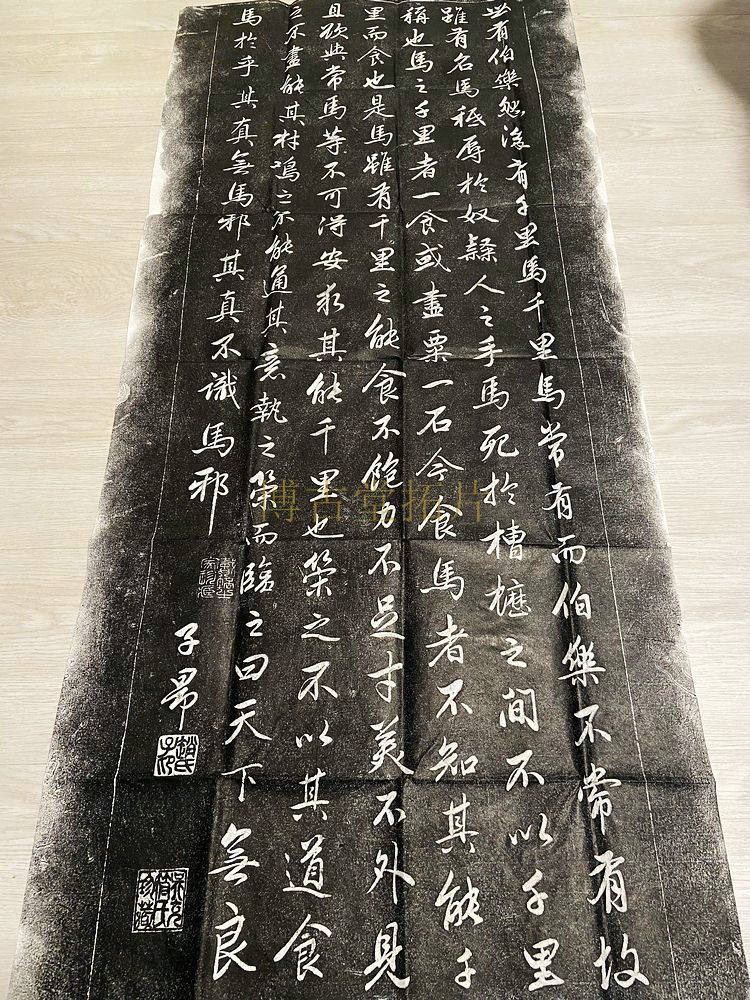 世有伯樂然後有千里馬千里馬常有而伯樂不常有故
雖有名馬秖辱於奴隸人之手馬死於槽櫪之間不以千里
稱也馬之千里者一食或盡粟一石今食馬者不知其能千
里而食也是馬雖有千里之能食不飽力不足才美不外見
且欲與常馬等不可得安求其能千里也策之不以其道食
之不盡能其材鳴之不能通其意執之策而臨之曰天下無良
馬於乎其真無馬邪其真不識馬邪
子昂
趙氏子昂
博古堂拓片